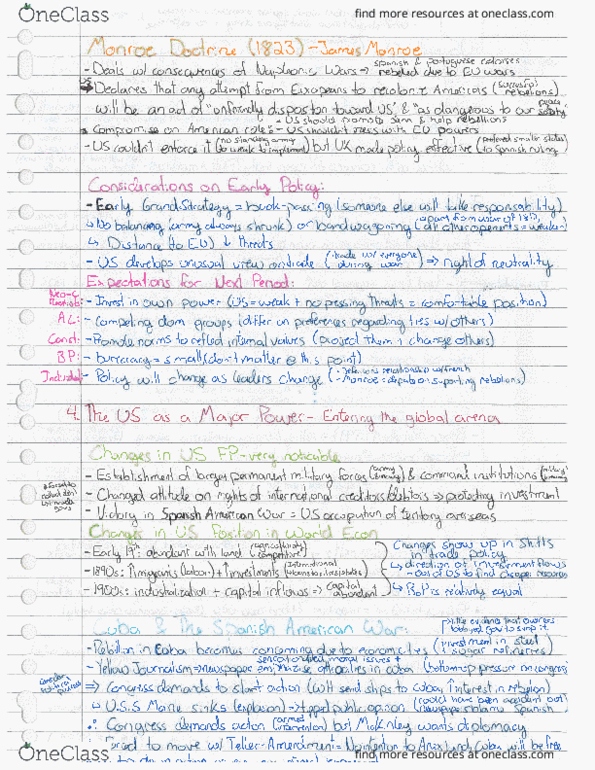 OneClass
find more resources at oneclass.com
Monroe Doctrine (1823) - James Monroe
- Deals w/ consequences of Napoleonic Wars → spanish & portuguese colonies rebelled due to EU wars
US
→ Declares that any attempt from Europeans to recolonize Americas (suppress rebellions)
will be an act of "unfriendly disposition toward US" & "as dangerous to our peace & safety"
→ US should promote dem & help rebellions
Compromise on American role - US shouldn't mess with EU powers
- US couldn't enforce it (no standing army to implement) but UK made policy effective (prefered smaller states to Spanish ruling
Considerations on Early Policy:
- Early Grand Strategy = buck-passing (someone else will take responsability)
↳ No balancing (army always shrunk) or bandwagoning (apart from war of 1812, all other opponents = weaker)
↳ Distance (to EU) ↓ threats
- US develops unusual view on trade (trade w/ everyone during war) ⇒ right of neutrality
Expectations for Next Period:
- Invest in own power (US = weak + no pressing threats = comfortable position)
AL: - Competing dom groups (differ on preferences regarding ties w/ others)
Const: - Promote norms to reflect internal values (project them & change others)
BP: - burcracy = small (don't matter @ this point)
Individual: - Policy will change as leaders change
4. The US as a Major Power - Entering the global arena
Changes in US FP - very noticible
- Establishment of larger permanent military forces & command institutions
- Changed attitude on rights of international creditors/debtors ⇒ protecting investment
- Victory in Spanish American War = US occupation of territory overseas
Changes in US Position in World Econ
- Early 19th: abundant with land
- 1890s: ↑ migrants (labor) + ↑ investments
- 1900s: industrialization + capital inflows ⇒ capital abundant
Changes show up in shifts in trade policy
↳ direction of investment flows
- out of US to find cheaper resources
↳ BoP is relatively equal
Cuba & The Spanish American War:
- Rebellion in Cuba becomes concerning due to economic ties (investment in steel & sugar refineries)
- Yellow Journalism ⇒ newspaper emphasize atrocities in cuba (bottom-up pressure on congress
⇒ Congress demands to start action (will send ships to cuba, ↑ interest in rebellion)
↳ U.S.S Maine sinks (explosion) → tipped public opinion (could have been accident but newspaper blame Spanish
∴ Congress demands action (armed intervention) but McKinley wants diplomacy
↳ Forced to move w/ Teller Amendment = No intention to Annex land, Cuba will be free
OneClass
find more resources at oneclass.com